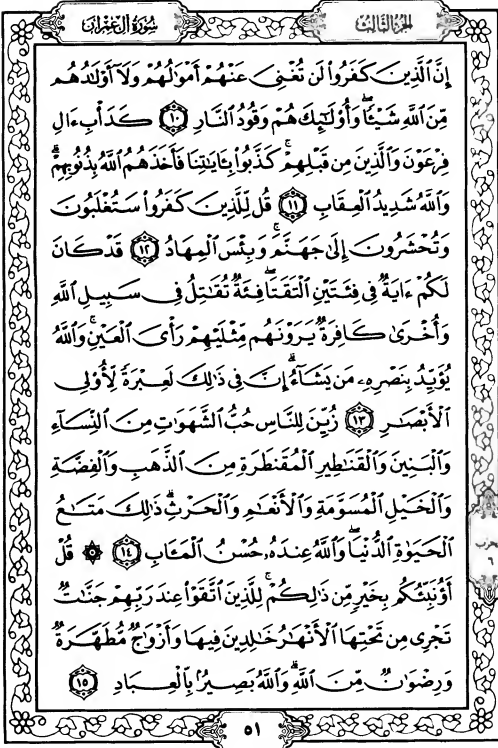 سُورَةُ آلِ عِمْرَانَ
الجُزْءُ الثَّالِثُ
إِنَّ ٱلَّذِينَ كَفَرُوا۟ لَن تُغْنِىَ عَنْهُمْ أَمْوَٰلُهُمْ وَلَآ أَوْلَـٰدُهُم
مِّنَ ٱللَّهِ شَيْـًٔا ۖ وَأُو۟لَـٰٓئِكَ هُمْ وَقُودُ ٱلنَّارِ ١٠ كَدَأْبِ ءَالِ
فِرْعَوْنَ وَٱلَّذِينَ مِن قَبْلِهِمْ ۚ كَذَّبُوا۟ بِـَٔايَـٰتِنَا فَأَخَذَهُمُ ٱللَّهُ بِذُنُوبِهِمْ ۗ
وَٱللَّهُ شَدِيدُ ٱلْعِقَابِ ١١ قُل لِّلَّذِينَ كَفَرُوا۟ سَتُغْلَبُونَ
وَتُحْشَرُونَ إِلَىٰ جَهَنَّمَ ۚ وَبِئْسَ ٱلْمِهَادُ ١٢ قَدْ كَانَ
لَكُمْ ءَايَةٌ فِى فِئَتَيْنِ ٱلْتَقَتَا ۖ فِئَةٌ تُقَـٰتِلُ فِى سَبِيلِ ٱللَّهِ
وَأُخْرَىٰ كَافِرَةٌ يَرَوْنَهُم مِّثْلَيْهِمْ رَأْىَ ٱلْعَيْنِ ۚ وَٱللَّهُ
يُؤَيِّدُ بِنَصْرِهِۦ مَن يَشَآءُ ۗ إِنَّ فِى ذَٰلِكَ لَعِبْرَةً لِّأُو۟لِى
ٱلْأَبْصَـٰرِ ١٣ زُيِّنَ لِلنَّاسِ حُبُّ ٱلشَّهَوَٰتِ مِنَ ٱلنِّسَآءِ
وَٱلْبَنِينَ وَٱلْقَنَـٰطِيرِ ٱلْمُقَنطَرَةِ مِنَ ٱلذَّهَبِ وَٱلْفِضَّةِ
وَٱلْخَيْلِ ٱلْمُسَوَّمَةِ وَٱلْأَنْعَـٰمِ وَٱلْحَرْثِ ۗ ذَٰلِكَ مَتَـٰعُ
ٱلْحَيَوٰةِ ٱلدُّنْيَا ۖ وَٱللَّهُ عِندَهُۥ حُسْنُ ٱلْمَـَٔابِ ١٤ ۞ قُلْ
أَؤُنَبِّئُكُم بِخَيْرٍ مِّن ذَٰلِكُمْ ۚ لِلَّذِينَ ٱتَّقَوْا۟ عِندَ رَبِّهِمْ جَنَّـٰتٌ
تَجْرِى مِن تَحْتِهَا ٱلْأَنْهَـٰرُ خَـٰلِدِينَ فِيهَا وَأَزْوَٰجٌ مُّطَهَّرَةٌ
وَرِضْوَٰنٌ مِّنَ ٱللَّهِ ۗ وَٱللَّهُ بَصِيرٌۢ بِٱلْعِبَادِ ١٥
حزب
٦
٥١